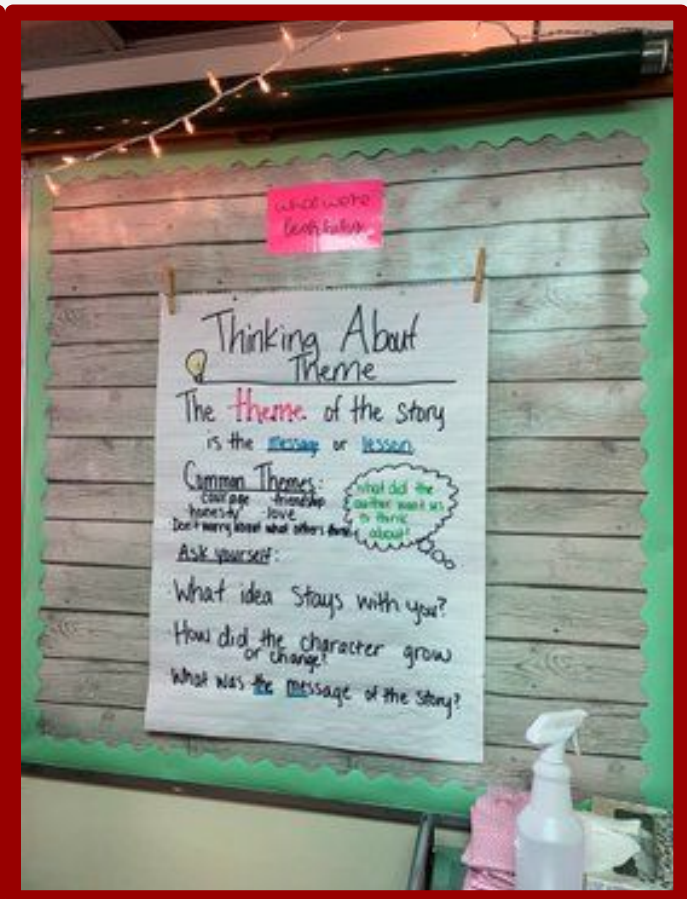 what we're
learning
Thinking About
Theme
The theme of the story
is the message or lesson
Common Themes:
courage friendship
honesty love
Don't worry about what others think
what did the
author want us
to think
about?
Ask yourself:
What idea stays with you?
How did the character grow
or change?
What was the message of the story?